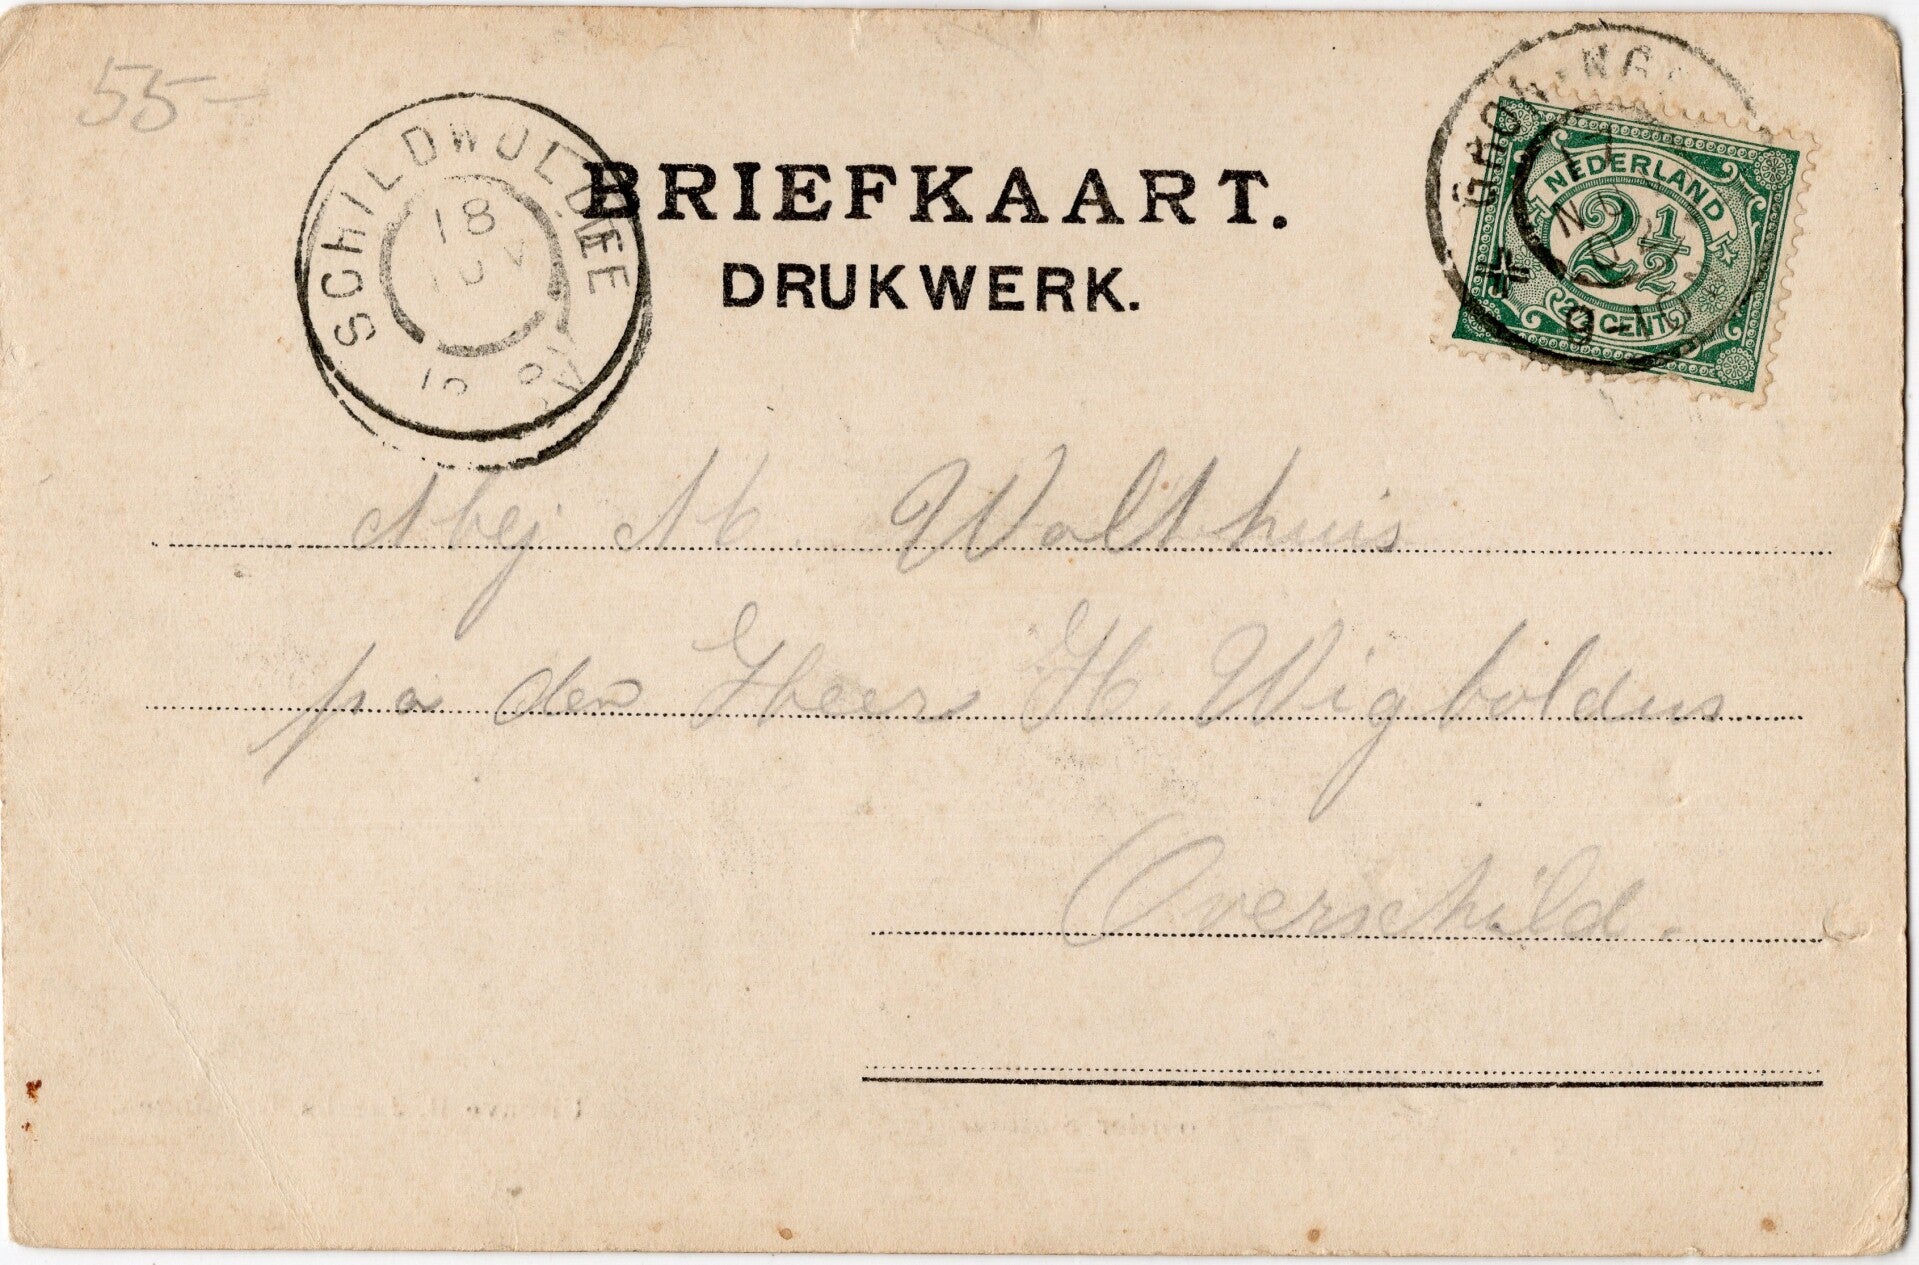 55-
SCHILDWOLDE
18
BRIEFKAART.
DRUKWERK.
GRONINGE
17
NOV
9-10
NEDERLAND
2½
2½ CENT
Mej M. Wolthuis
pa den Heer H. Wigboldus
Overschild.